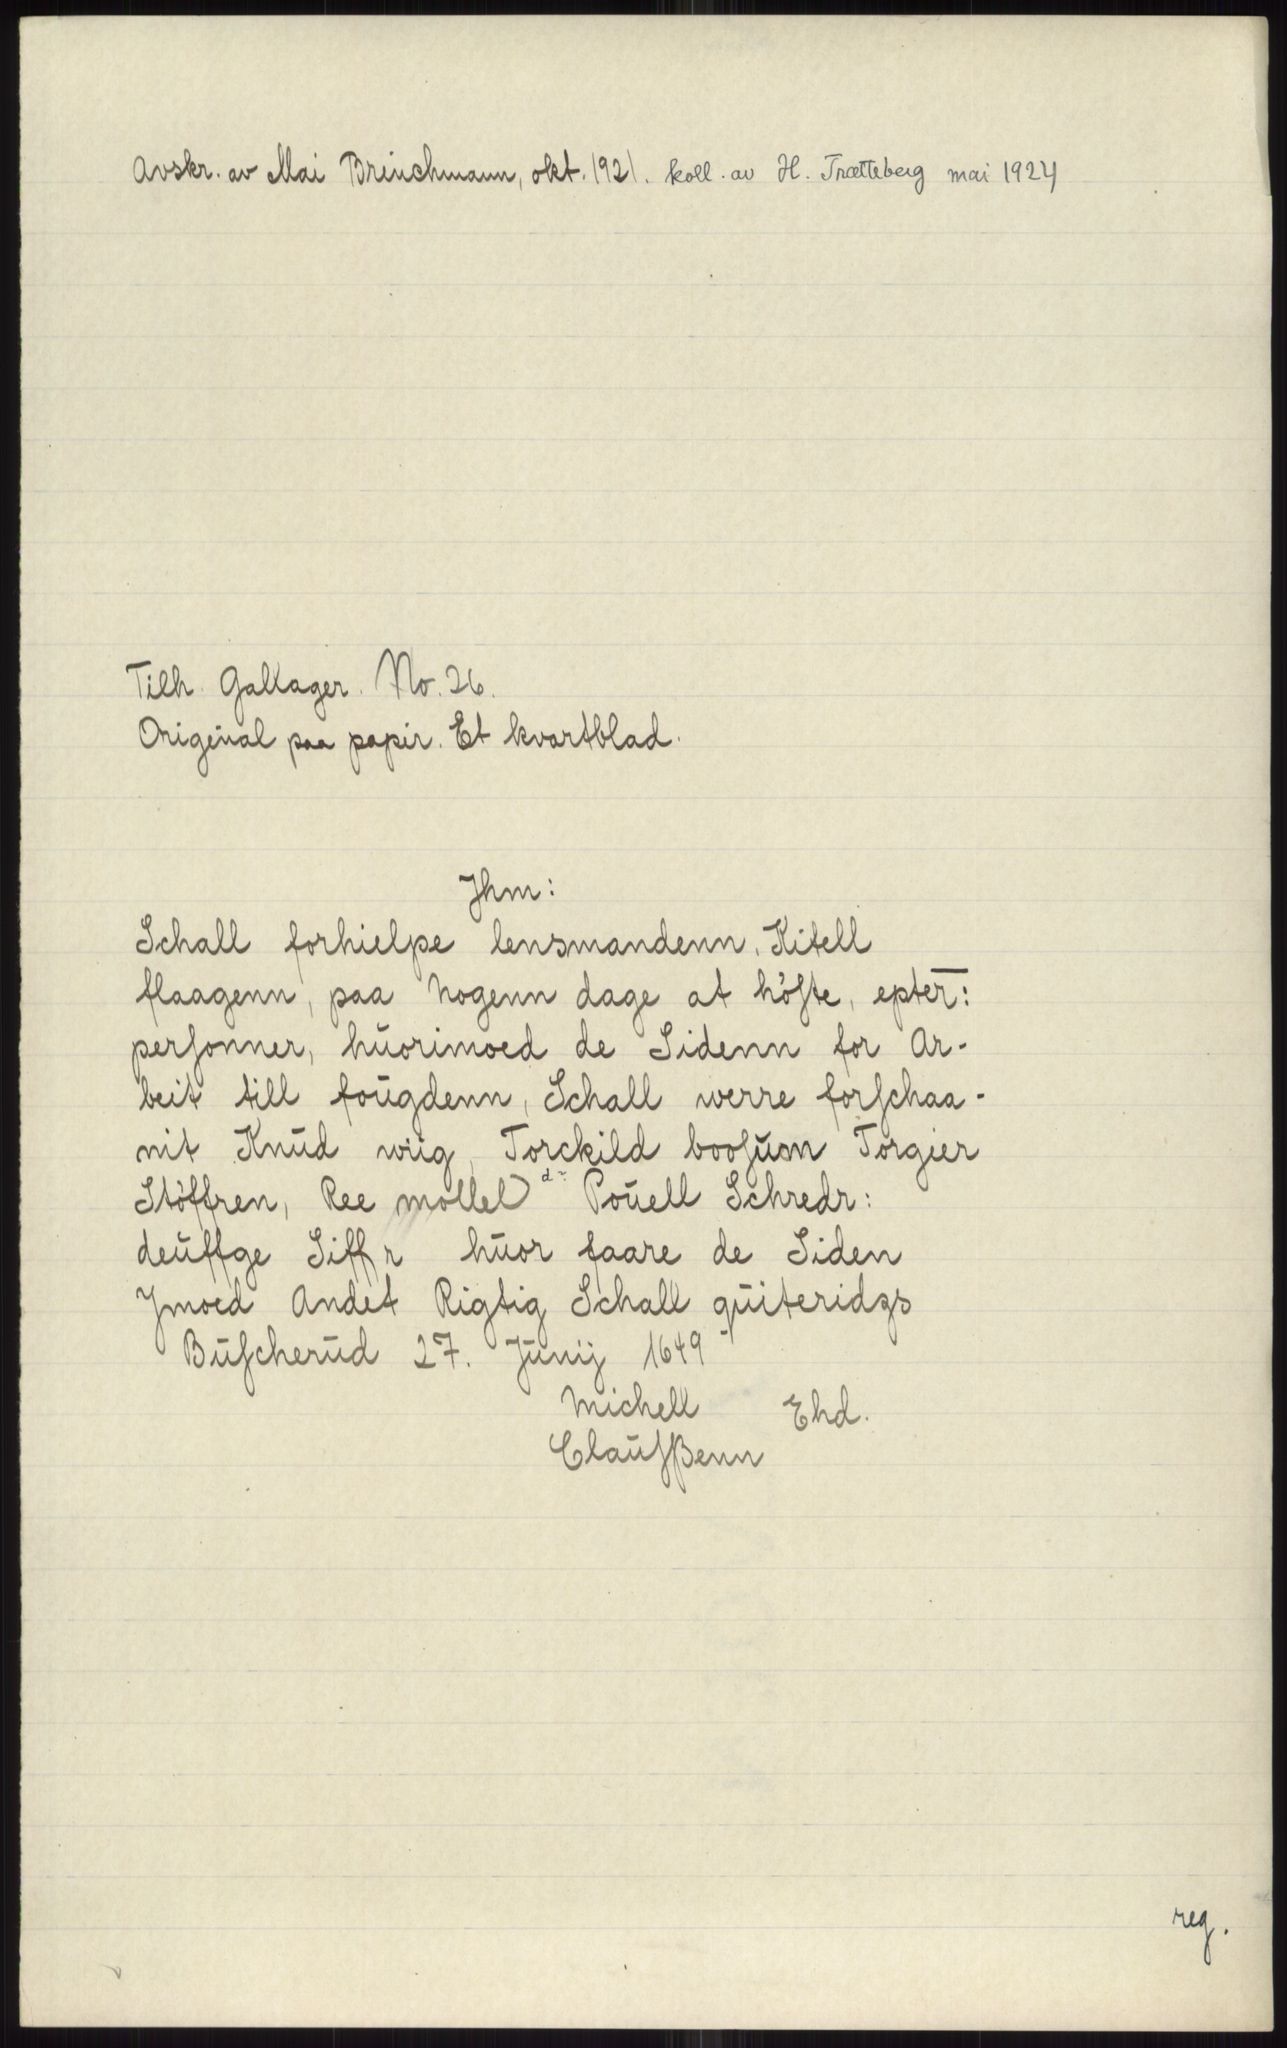 Avskr. av Mai Brinchmann, okt. 1921. koll. av H. Trætteberg mai 1924
Tilh. Gallager. No. 26.
Original paa papir. Et kvartblad.
Jhm:
Schall forhielpe lensmandenn, Kitell
flaagenn, paa Nogenn dage at höste, epter:
perſonner, huorimoed de Sidenn for Ar-
beit till fougdenn, Schall werre forſchaa-
nit Knud wiig, Torckild booſum Torgier
Stöffren, Ree mollel Pouell Schredr:
deuffge Siffr huor faare de Siden
Jmoed Andet Rigtig Schall quiteridgs
Buſcherud 27. Junij 1649
Michell Ehd.
Clauſßenn
reg.